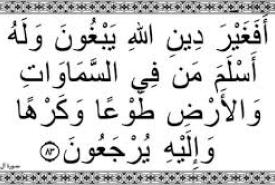 أَفَغَيْرَ دِينِ اللهِ يَبْغُونَ وَلَهُ
أَسْلَمَ مَن فِي السَّمَاوَاتِ
وَالْأَرْضِ طَوْعًا وَكَرْهًا
وَإِلَيْهِ يُرْجَعُونَ ﴿٨٣﴾
سورة آل